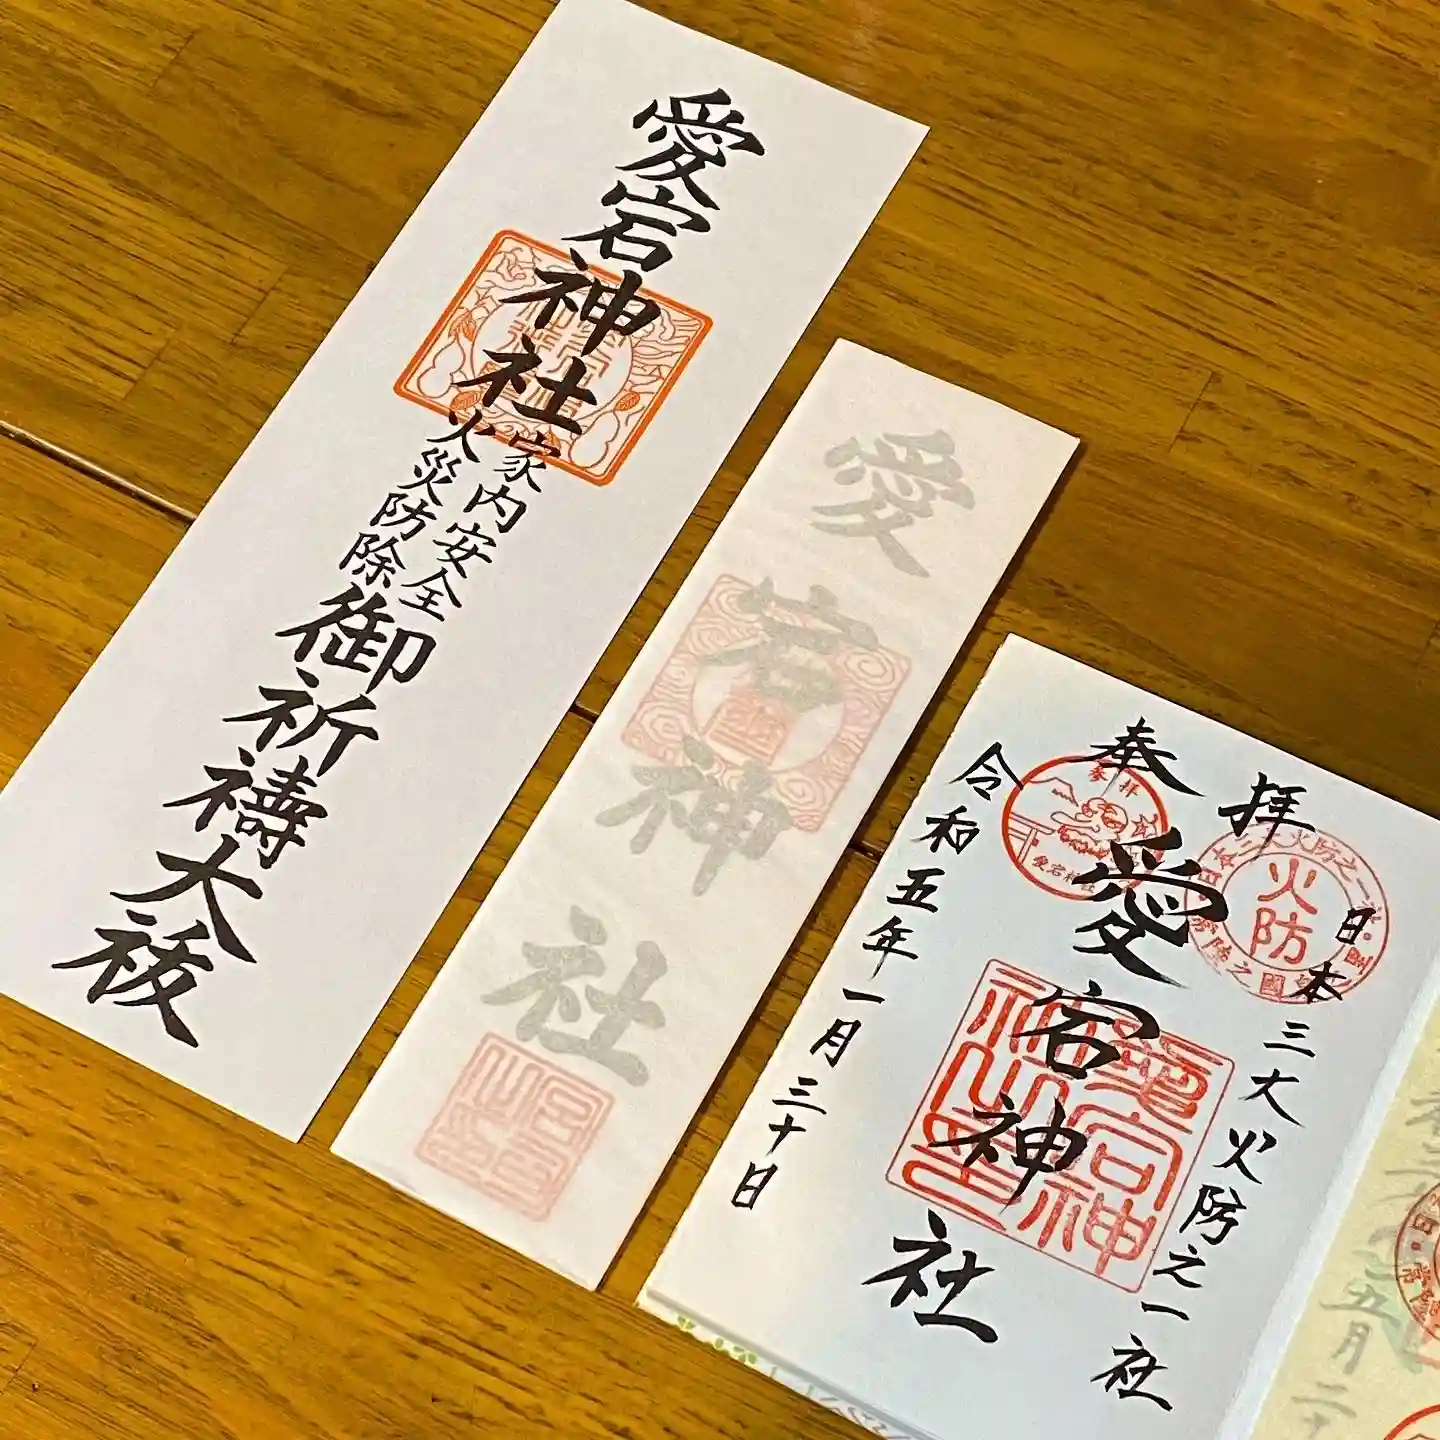 愛宕神社
家内安全
火災防除
御祈祷大祓
愛宕神社
奉拝
日本三大火防之一社
愛宕神社
令和五年一月三十日
参拝
愛宕神社
火防
五月二十